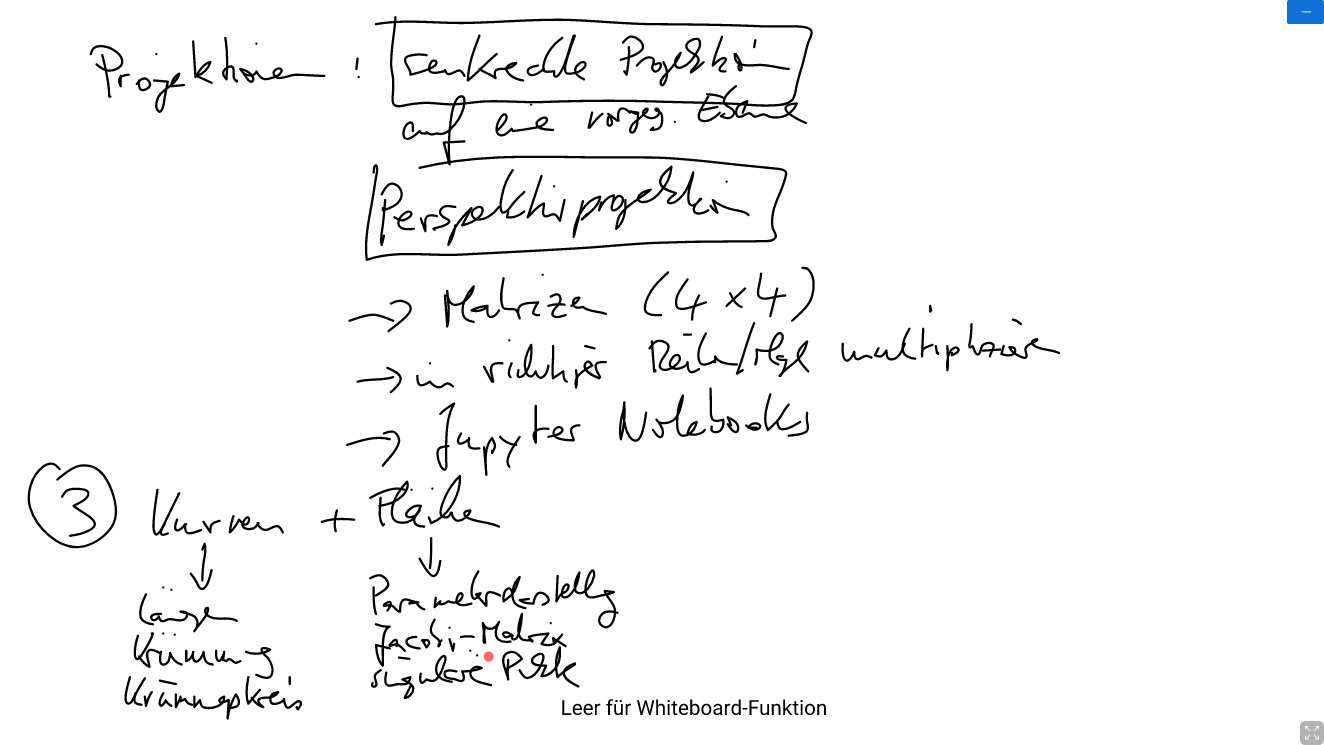 Projektionen : senkrechte Projektion
auf eine vorgeg. Ebene
Perspektivprojektion
→ Matrizen (4 x 4)
→ in richtiger Reihenfolge multiplizieren
→ Jupyter Notebooks
③ Kurven + Flächen
↓ ↓
Längen
Krümmung
Krümmungskreis
Parameterdarstellg
Jacobi-Matrix
singuläre Pukte
Leer für Whiteboard-Funktion